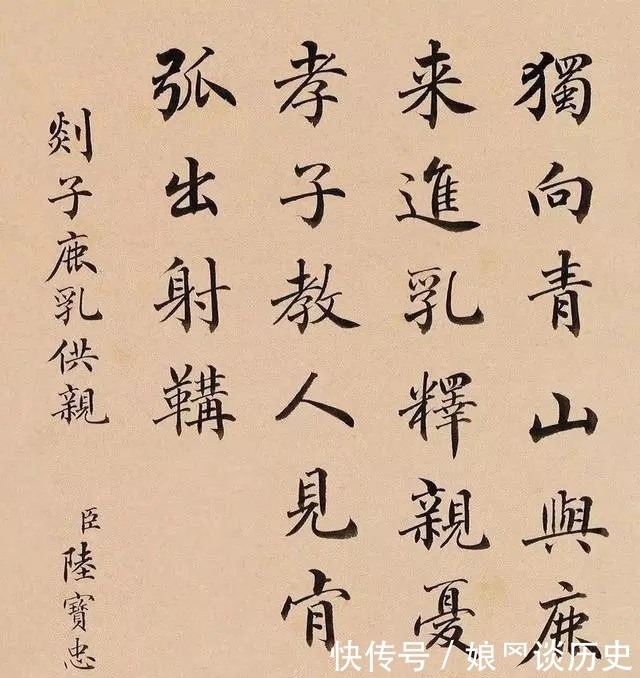 獨向青山與鹿
来進乳釋親憂
孝子教人見肯
弧出射鞲
剡子鹿乳供親
臣陸寶忠
快传号 / 娘网谈历史